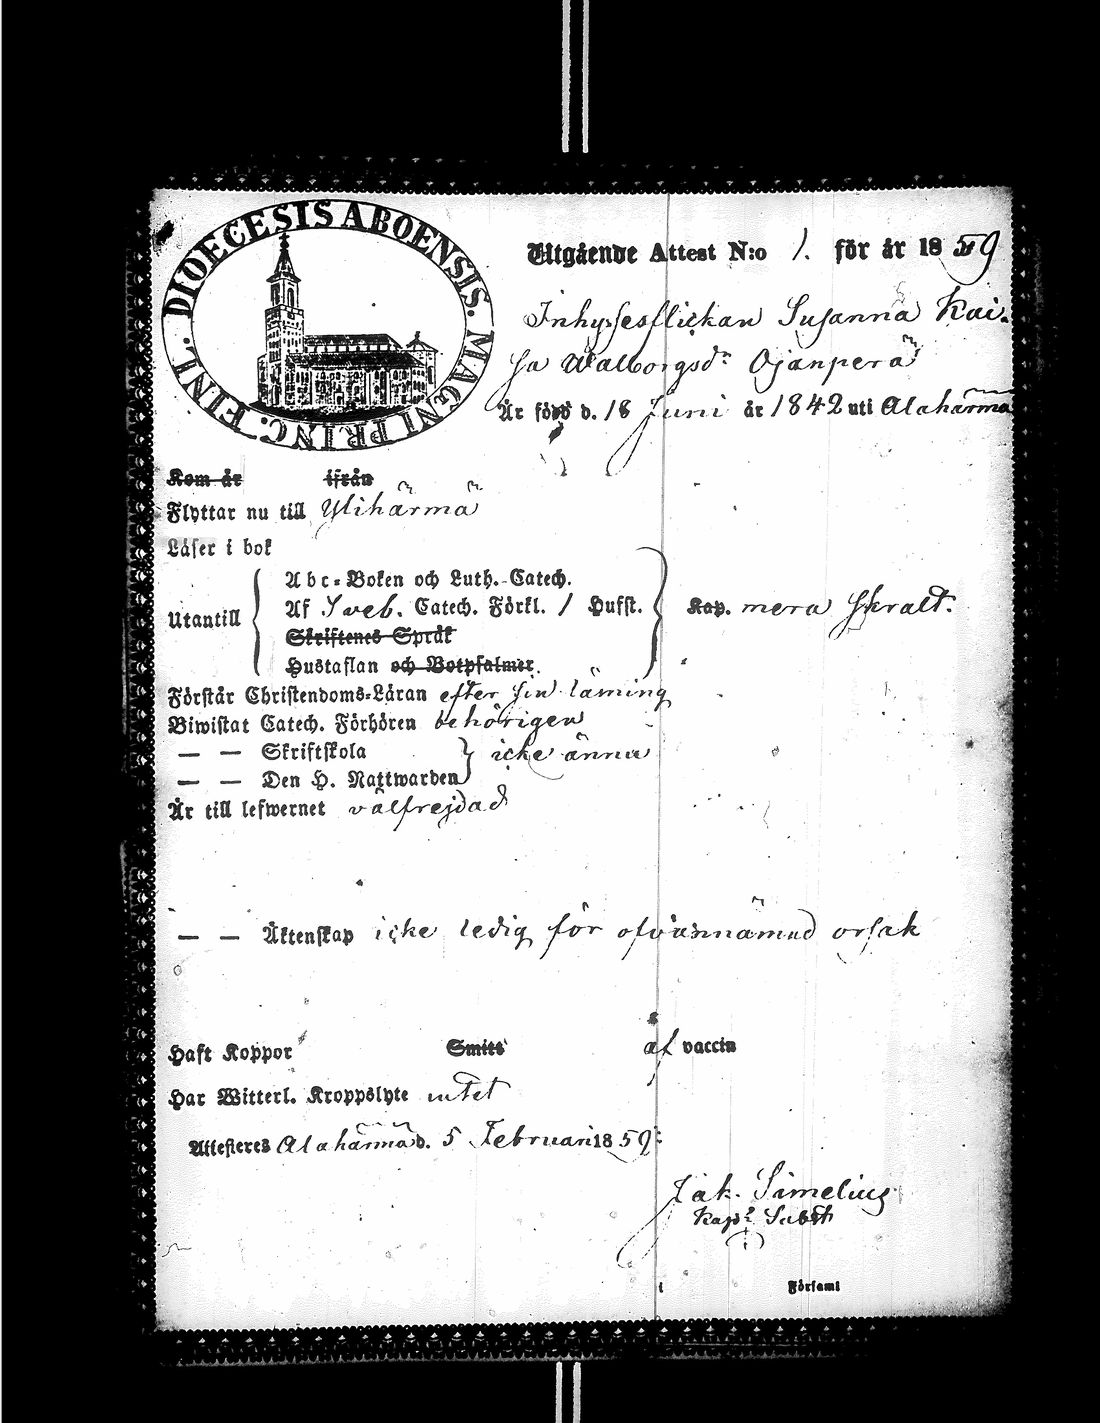 DIOECESIS ABOENSIS. MAGNI PRINC. FINL.
Utgående Attest N:o 1. för år 1859
Inhysesflickan Susanna Kai-
sa Walborgsdr Ojanperä
Är född d. 18 Juni år 1842 uti Alahärmä
Kom år ifrån
Flyttar nu till Ylihärmä
Läser i bok
Abc-Boken och Luth. Catech.
Utantill Af Sveb. Catech. Förkl. 1 Hufst. Kap. mera skralt.
Skriftenes Språk
Hustaflan och Botpsalmer.
Förstår Christendoms-Läran efter sin läming
Biwistat Catech. Förhören behörigen
— — Skriftskola icke ännu
— — Den H. Nattwarden
Är till lefwernet välfrejdad
— — Äktenskap icke ledig för ofvannämnd orsak
Haft Koppor Smitt af vaccin
Har Witterl. Kroppslyte intet
Attesteres Alahärmä d. 5 Februari 1859:
Jak. Simelius
Kapl. Subst
i Församl